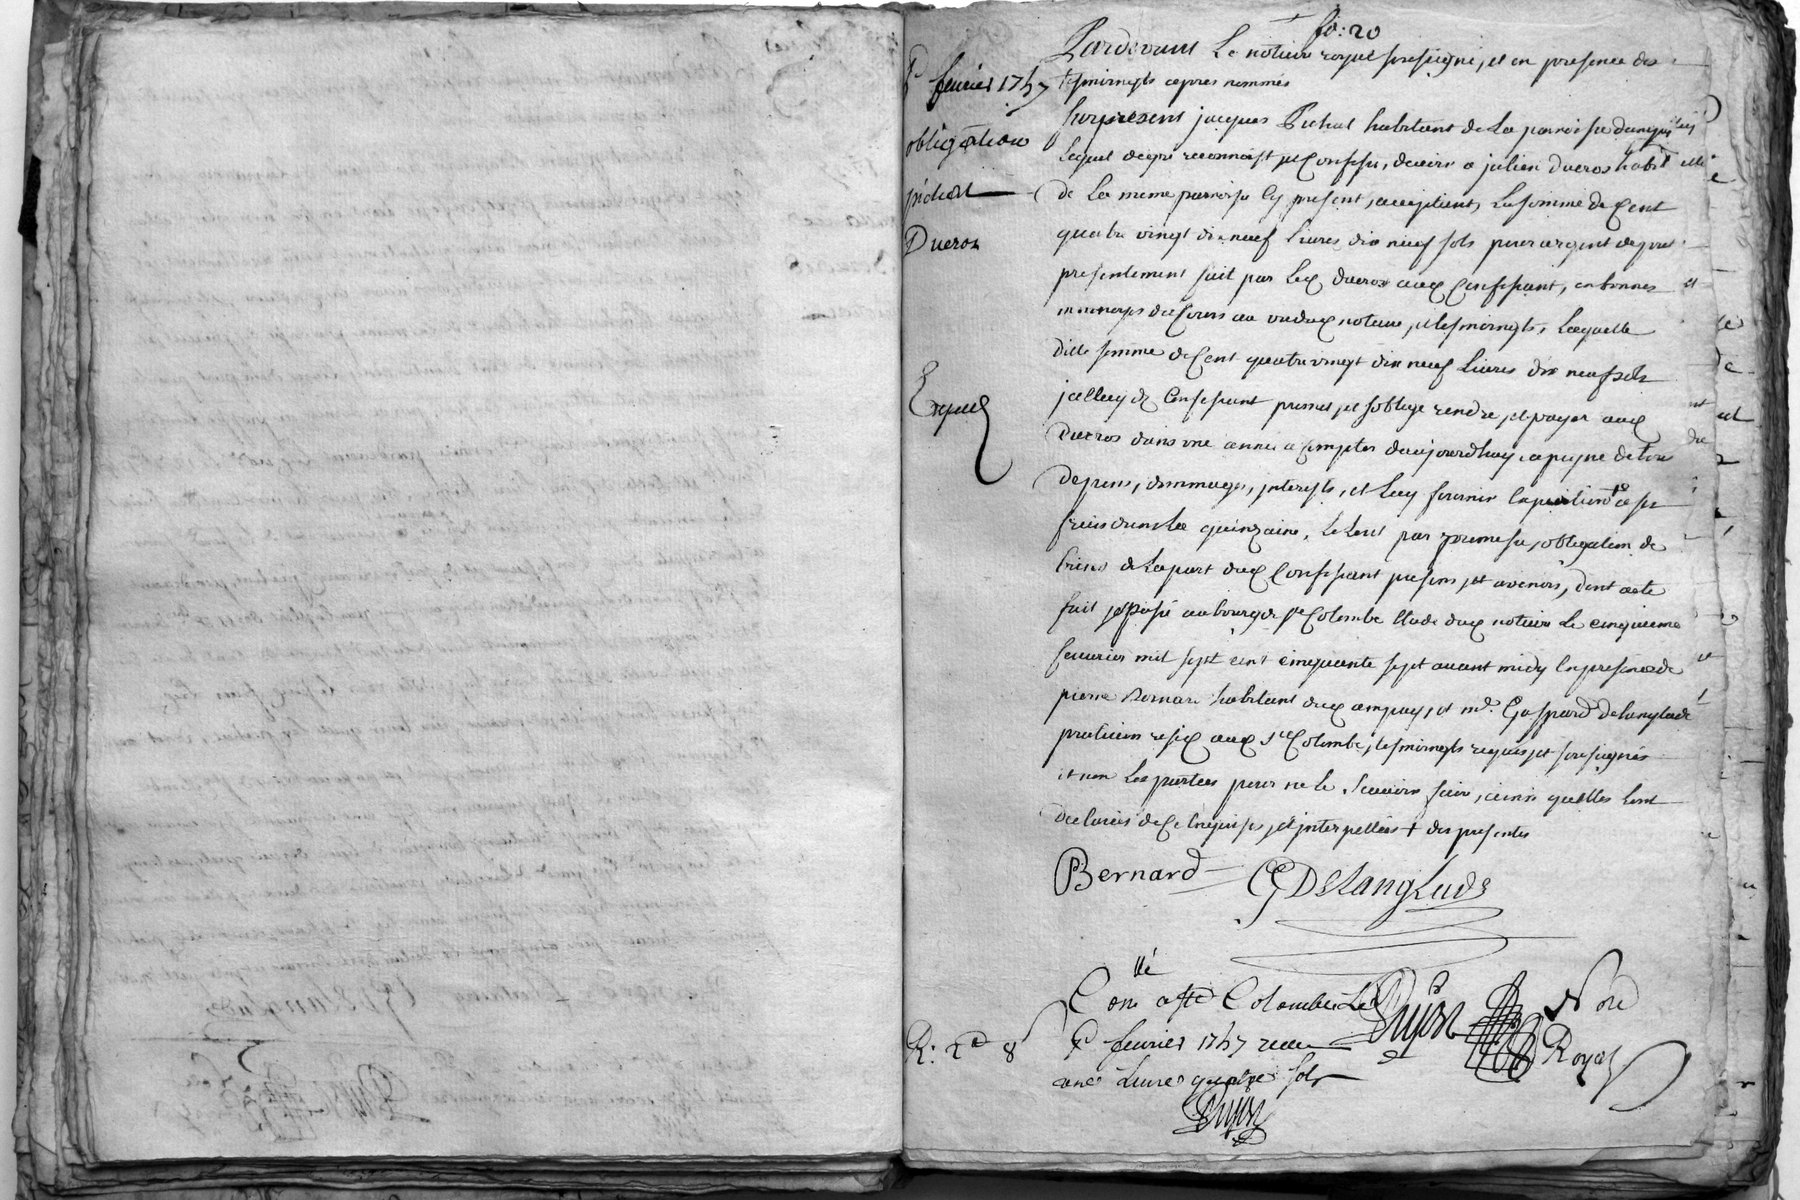 fo: 20
Pardevant Le notaire royal soussigné, et en presence des
tesmoingts apres nommés
5e fevrier 1757
obligation
pichat
Ducros
Expedié
Surpresent jacques Pichat habitant de La parroisse
Lequel de gré reconnoist et Confesse, devoir a julien Ducros habitt
de La meme parroisse Cy present, acceptant, La somme de Cent
quatre vingt dix neuf Livres dix neuf sols pour argent de pret
presentement fait par Led Ducros aud Confessant, en bonnes
monnoyes du Cours au vu dud notaire, et tesmoingts, Laquelle
ditte somme de Cent quatre vingt dix neuf Livres dix neuf sols
jcelluy d Confessant promet, et s'oblige rendre, et payer aud
Ducros dans une année a Compter daujourdhuy, a peyne de tous
depens, dommages, jnterests, et Luy fournir Expedition de ses
frais dans La quinzaine, Le tout par promesse, obligation de
biens de La part dud Confessant presens, et avenirs, dont acte
fait et passé au bourg de ste Colombe Etude dud notaire Le cinquieme
fevrier mil sept cent cinquante sept avant midy En presence de
pierre Bernard habitant dud ampuy, et md. Gaspard Delanglade
praticien resid aud ste Colombe, tesmoingts requis, et soussignés
et non Les parties pour ne le sçavoir faire, ainsi quelles l'ont
declarés de Ce Enquises, et jnterpellées + des presentes
Bernard G Delanglade
llé
Conté a Ste Colombe Le
5e fevrier 1757 recu
une Livre quatre sols
R: 2d 8s
Dujon Nore
Royal
Dujon